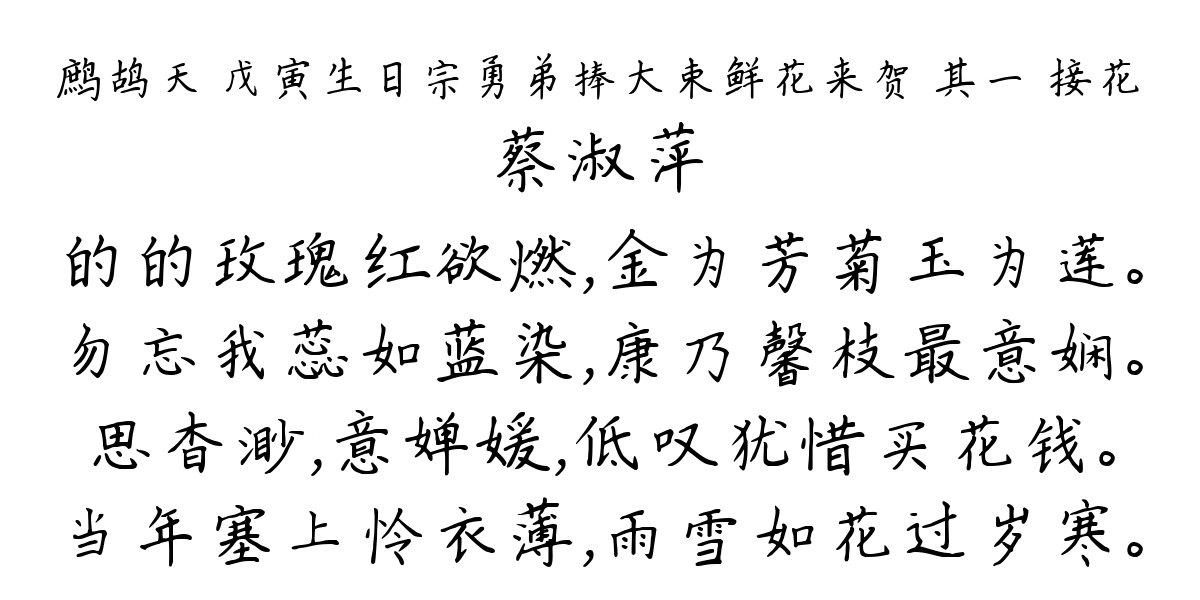 鹧鸪天 戊寅生日宗勇弟捧大束鲜花来贺 其一 接花
蔡淑萍
的的玫瑰红欲燃,金为芳菊玉为莲。
勿忘我蕊如蓝染,康乃馨枝最意娴。
思杳渺,意婵媛,低叹犹惜买花钱。
当年塞上怜衣薄,雨雪如花过岁寒。